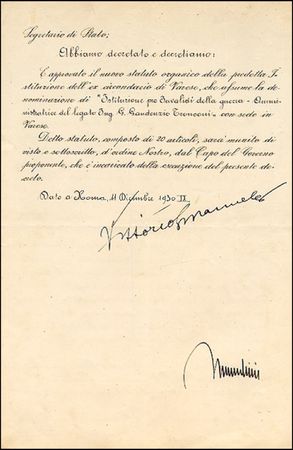 Segretario di Stato;
Abbiamo decretato e decretiamo:
È approvato il nuovo statuto organico della predetta I-
stituzione dell'ex circondario di Varese, che assume la de-
nominazione di "Istituzione pro Invalidi della guerra - Ammi-
nistratrice del legato Ing. G. Gaudenzio Tronconi„ con sede in
Varese.
Detto statuto, composto di 20 articoli, sarà munito di
visto e sottoscritto, d'ordine Nostro, dal Capo del Governo
proponente, che è incaricato della esecuzione del presente de-
creto.
Dato a Roma, 11 Dicembre 1930 IX
Vittorio Emanuele
Mussolini